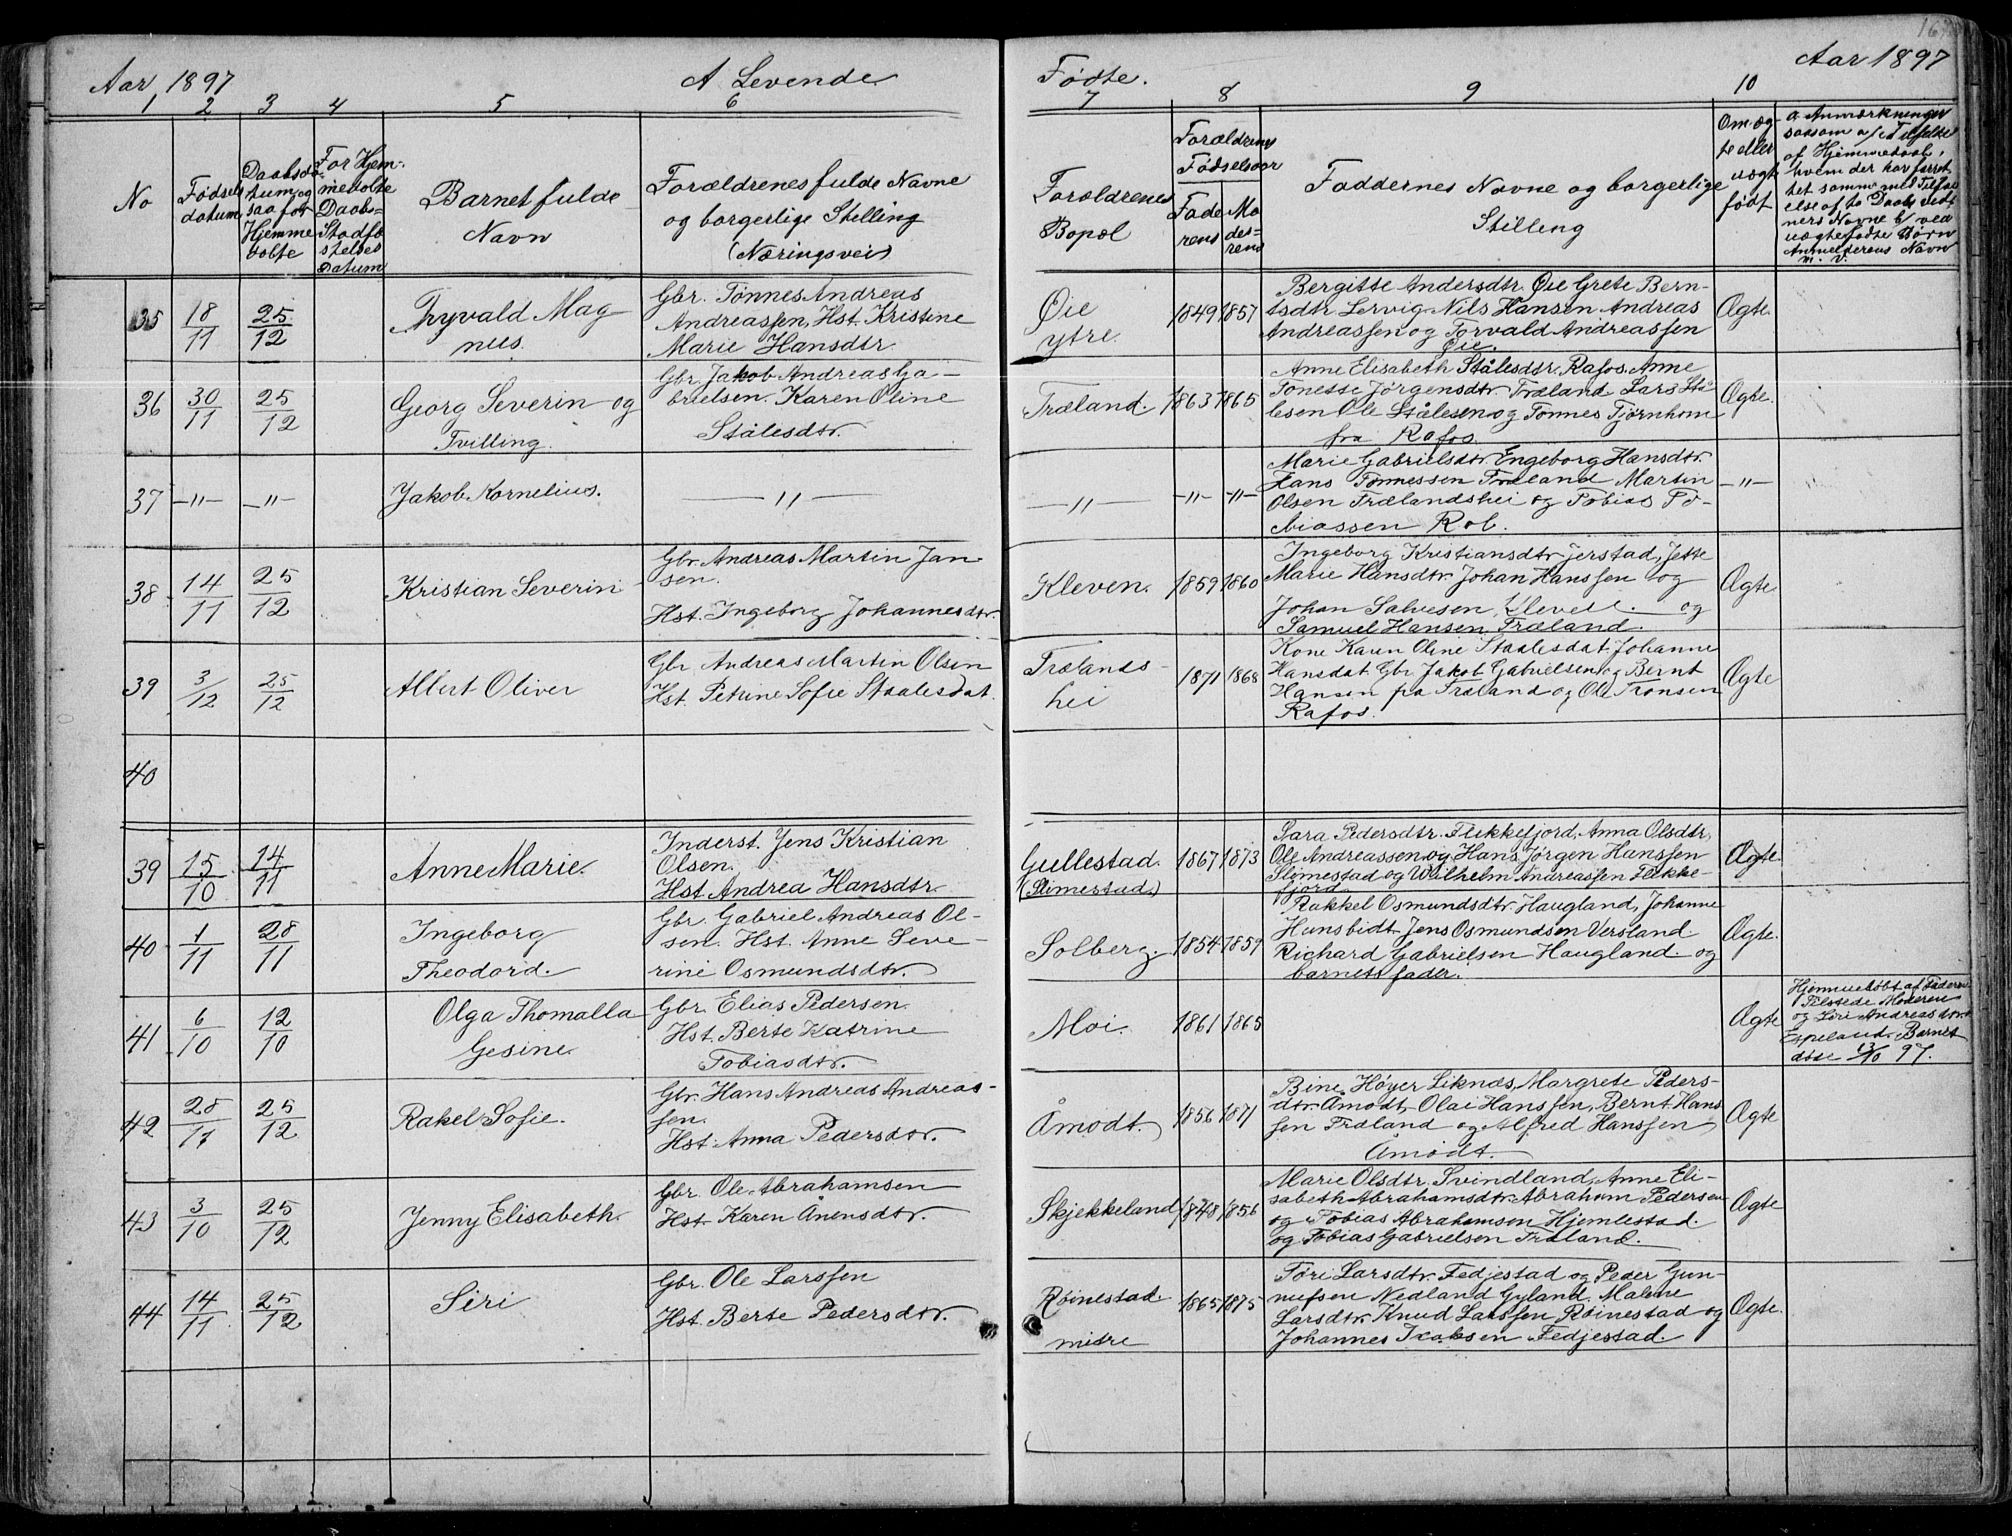 Aar 1897
A Levende
Fødte.
Aar 1897
1 2 3 4 5 6 7 8 9 10
No
Fødsels
datum
Daabsda-
tum og
saa for
Hjemme
døbte
For Hjem-
medøbte
Daabs-
Stadfæ
stelses
Datum
Barnet fulde
Navn
Forældrenes fulde Navne
og borgerlige Stilling
(Næringsvei)
Forældrenes
Bopæl
Forældrenes
Fødselsaar
Fade
rens
Mo
de-
rens
Faddernes Navne og borgerlige
Stilling
Om æg-
te eller
uægt
født
Anmærkninger
saasom a/ Tilfælde
af Hjemmedaab,
hvem der har forret
tet samme med Tilføi
else af to Daabsvid-
ners Navne b/ ved
uægtefødte Børn
Anmelderens Navn
m. v.
35 18/11 25/12
Thyvald Mag
nus.
Gbr. Tønnes Andreas
Andreassen, Hst. Kristine
Marie Hansdtr
Øie
ytre.
1849 1857
Bergitte Andersdtr. Øie Grete Bern-
tsdtr Lervig Nils Hansen Andreas
Andreassen og Torvald Andreassen
Øie.
Ægte.
36 30/11 25/12
Georg Severin og
Tvilling.
Gbr. Jakob Andreas Ga-
brielsen. Karen Oline
Stålesdtr.
Træland.
1863 1865
Anne Elisabeth Stålesdtr. Rafos. Anne
Tonette Jørgensdtr. Træland Lars Stå
lesen Ole Stålesen og Tønnes Tjørnhom
fra Rafos.
Ægte.
37 —"— —"—
Jakob Kornelius.
—"—
—"—
—"— —"—
Marie Gabrielsdtr. Engeborg Hansdtr.
Hans Tønnessen Træland Martin
Olsen Trælandshei og Tobias To-
biassen Rob.
—"—
38 14/11 25/12
Kristian Severin
Gbr. Andreas Martin Jan-
sen.
Hst. Ingeborg Johannesdtr.
Kleven.
1859 1860
Ingeborg Kristiansdtr jerstad, Jette
Marie Hansdtr. Johan Hanssen og
Johan Salvesen Kleven. og
Samuel Hansen Træland.
Ægte.
39 3/12 25/12
Albert Oliver
Gbr. Andreas Martin Olsen
Hst. Petrine Sofie Staalesdat.
Trælands-
hei
1871 1868
Kone Karen Oline Staalesdat, Johanne
Hansdat. Gbr Jakob Gabrielsen og Bernt
Hansen fra Træland og Ole Tronsen
Rafos.
Ægte
40
39 15/10 14/11
Anne Marie.
Inderst. Jens Kristian
Olsen.
Hst. Andrea Hansdtr.
Gullestad.
(Slimestad.)
1867 1873
Sara Pedersdtr. Flikkefjord, Anna Olsdtr.
Ole Andreassen og Hans Jørgen Hanssen
Slimestad og Wilhelm Andreassen Flikke-
fjord
Ægte.
40 1/11 28/11
Ingeborg
Theodord.
Gbr. Gabriel Andreas Ol-
sen. Hst. Anne Seve-
rine Osmundsdtr.
Solberg.
1854 1859
Rakkel Osmundsdtr. Haugland, Johanne
Jens Osmundsen Versland
Richard Gabrielsen Haugland. og
barnets fader.
Ægte.
41 6/10 12/10
Olga Thomalla
Gesine.
Gbr. Elias Pedersen.
Hst. Berte Katrine
Tobiasdtr.
Moi.
1861 1865
Ægte
Hjemmedøbt af Faderen
Tilstede Moderen
og Siri Andreasdtr.
Espeland. Barnet
døde 13/10 97.
42 28/11 25/12
Rakel Sofie.
Gbr. Hans Andreas Andreas-
sen.
Hst. Anna Pedersdtr.
Åmodt.
1856 1871
Bine Høyer Liknæs, Margrete Peders-
dtr. Åmodt, Olai Hanssen, Bernt Hans
sen Træland og Alfred Hanssen
Åmodt.
Ægte
43 3/10 25/12
Jenny Elisabeth.
Gbr. Ole Abrahamsen
Hst. Karen Ånensdtr.
Skjekkeland
1848 1856
Marie Olsdtr. Svindland, Anne Eli-
sabeth Abrahamsdtr. Abraham Pedersen
og Tobias Abrahamsen Hjemlestad.
og Tobias Gabrielsen Træland.
Ægte
44 14/11 25/12
Siri
Gbr. Ole Larssen
Hst. Berte Pedersdtr.
Røinestad
midre
1865 1875
Tøri Larsdtr. Fedjestad og Peder Gun-
nufsen Nedland Gyland. Malene
Larsdtr. Knud Larssen Røinestad og
Johannes Isaksen Fedjestad.
Ægte.